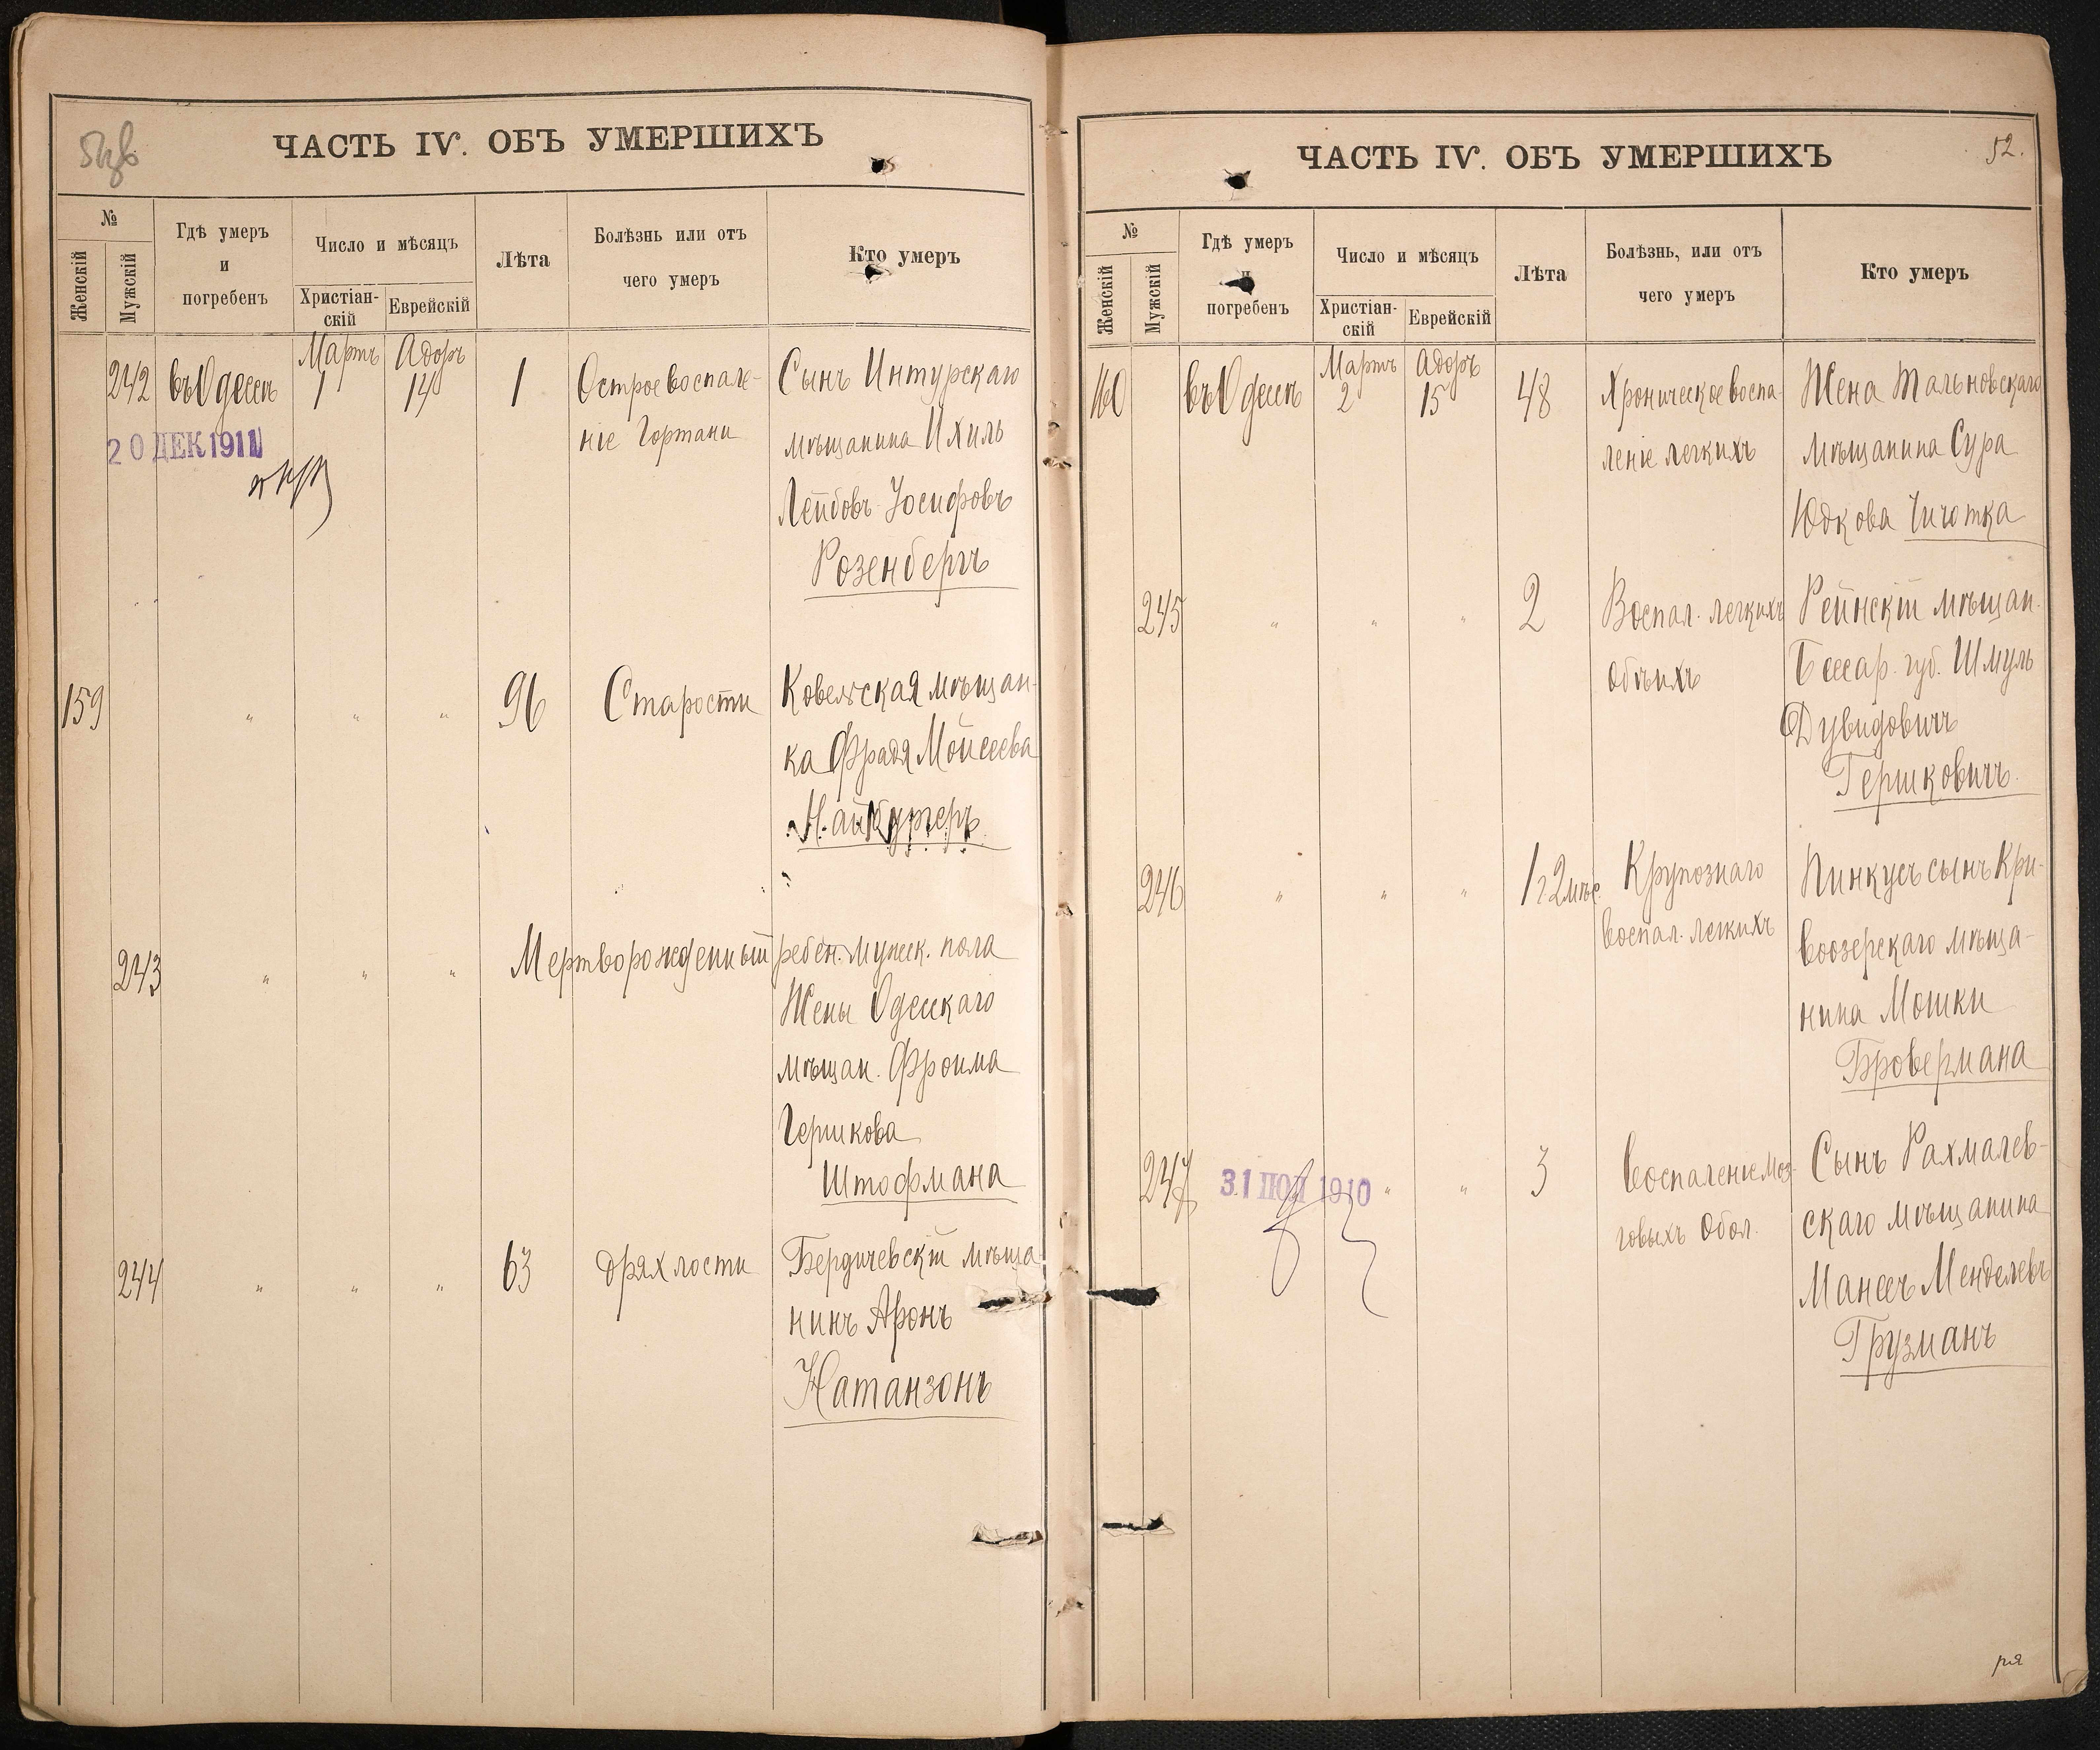 ЧАСТЬ IV. ОБЪ УМЕРШИХЪ
№
Женскій
Мужскій
Гдѣ умеръ
и
погребенъ
Число и мѣсяцъ
Христіан-
скій
Еврейскій
Лѣта
Болѣзнь или отъ
чего умеръ
Кто умеръ
Мартъ Адоръ
242 въ Одессѣ 1 14 1 Острое воспале- Сынъ Интурскаго
20 ДЕК 1911
ніе Гортани мѣщанина Ихиль
Лейбовъ-Іосифовъ
Розенбергъ
159 " " " 96 Старости Ковельская мѣщан-
ка Фрадя Мойсеева
243 " " " Мертворожденный ребен. мужск. пола
Жены Одесскаго
мѣщан. Фроима
Гершкова
Штофмана
244 " " " 63 дряхлости Бердичевскій мѣща-
нинъ Аронъ
Натанзонъ
ЧАСТЬ IV. ОБЪ УМЕРШИХЪ
52.
№
Женскій
Мужскій
Гдѣ умеръ
и
погребенъ
Число и мѣсяцъ
Христіан-
скій
Еврейскій
Лѣта
Болѣзнь, или отъ
чего умеръ
Кто умеръ
Мартъ Адоръ
160 въ Одессѣ 2 15 48 Хроническое воспа- Жена Тальновскаго
леніе легкихъ мѣщанина Сура
Юдкова Чичотка
245 " " " 2 Воспал. легкихъ Рейнскій мѣщан.
обѣихъ Бессар. губ. Шмуль
Дувидовичъ
Гершковичъ
246 " " " 1 г 2 мѣс. Крупознаго Пинкусъ сынъ Кри-
воспал. легкихъ воозерскаго мѣща-
нина Мошки
Бровермана
247 31 ІЮЛ 1910 " " 3 Воспаленіе моз- Сынъ Рахмалев-
говыхъ обол. скаго мѣщанина
Манесъ Менделевъ
Грузманъ